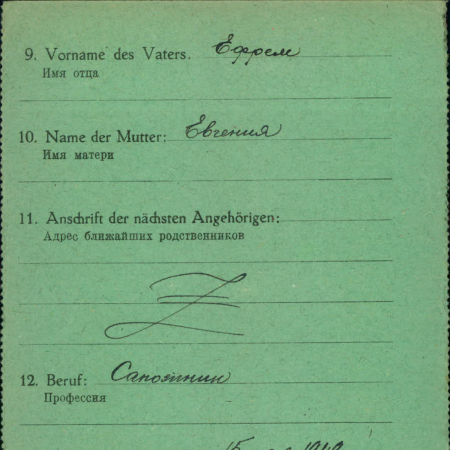 9. Vorname des Vaters. Ефрем
Имя отца
10. Name der Mutter: Евгения
Имя матери
11. Anschrift der nächsten Angehörigen:
Адрес ближайших родственников
12. Beruf: Сапожник
Профессия